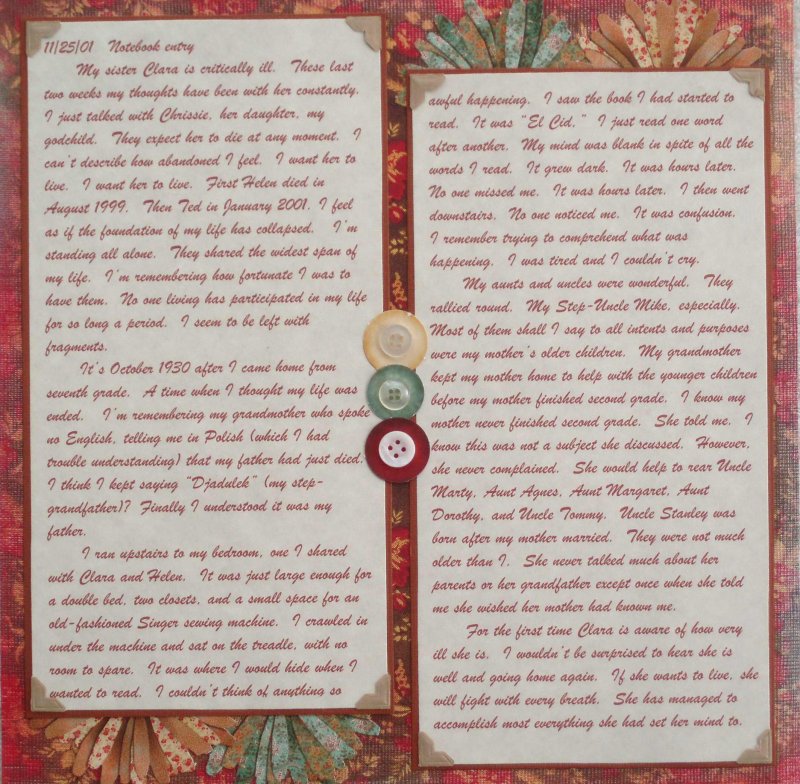 11/25/01 Notebook entry
My sister Clara is critically ill. These last
two weeks my thoughts have been with her constantly.
I just talked with Chrissie, her daughter, my
godchild. They expect her to die at any moment. I
can't describe how abandoned I feel. I want her to
live. I want her to live. First Helen died in
August 1999. Then Ted in January 2001. I feel
as if the foundation of my life has collapsed. I'm
standing all alone. They shared the widest span of
my life. I'm remembering how fortunate I was to
have them. No one living has participated in my life
for so long a period. I seem to be left with
fragments.
It's October 1930 after I came home from
seventh grade. A time when I thought my life was
ended. I'm remembering my grandmother who spoke
no English, telling me in Polish (which I had
trouble understanding) that my father had just died.
I think I kept saying "Djadulek" (my step-
grandfather)? Finally I understood it was my
father.
I ran upstairs to my bedroom, one I shared
with Clara and Helen. It was just large enough for
a double bed, two closets, and a small space for an
old-fashioned Singer sewing machine. I crawled in
under the machine and sat on the treadle, with no
room to spare. It was where I would hide when I
wanted to read. I couldn't think of anything so
awful happening. I saw the book I had started to
read. It was "El Cid." I just read one word
after another. My mind was blank in spite of all the
words I read. It grew dark. It was hours later.
No one missed me. It was hours later. I then went
downstairs. No one noticed me. It was confusion.
I remember trying to comprehend what was
happening. I was tired and I couldn't cry.
My aunts and uncles were wonderful. They
rallied round. My Step-Uncle Mike, especially.
Most of them shall I say to all intents and purposes
were my mother's older children. My grandmother
kept my mother home to help with the younger children
before my mother finished second grade. I know my
mother never finished second grade. She told me. I
know this was not a subject she discussed. However,
she never complained. She would help to rear Uncle
Marty, Aunt Agnes, Aunt Margaret, Aunt
Dorothy, and Uncle Tommy. Uncle Stanley was
born after my mother married. They were not much
older than I. She never talked much about her
parents or her grandfather except once when she told
me she wished her mother had known me.
For the first time Clara is aware of how very
ill she is. I wouldn't be surprised to hear she is
well and going home again. If she wants to live, she
will fight with every breath. She has managed to
accomplish most everything she had set her mind to.